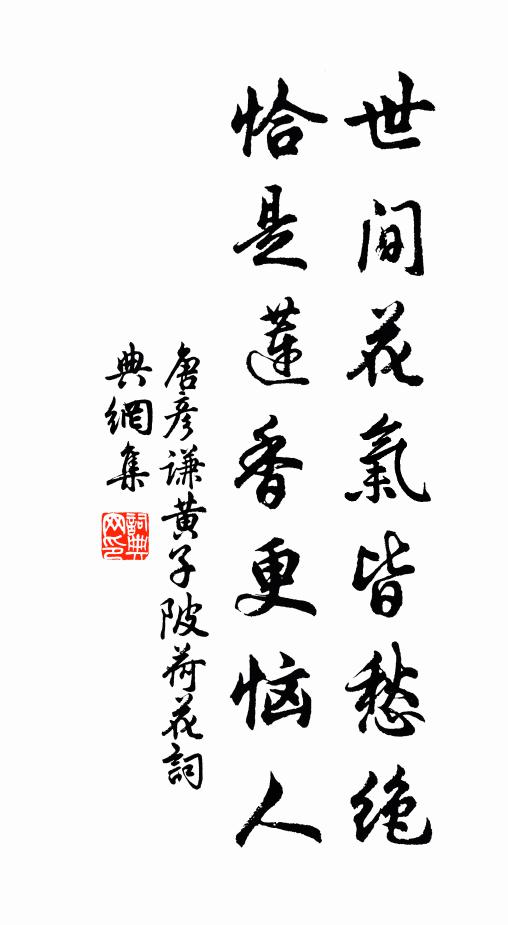 世間花氣皆愁絶
恰是蓮香更恼人
唐彥谦黄子陂荷花詞
典網集
詞典
网印